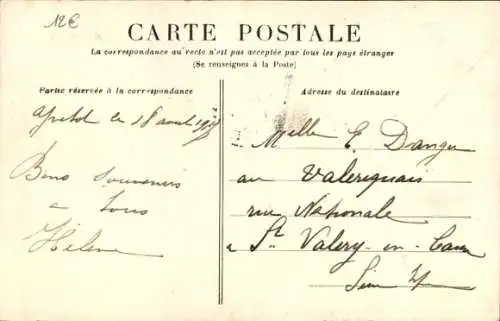 12€
CARTE POSTALE
La correspondance au recto n'est pas acceptée par tous les pays étrangers
(Se renseigner à la Poste)
Partie réservée à la correspondance
Adresse du destinataire
le 18 août
Bons souvenirs
à tous
Hélène
Melle E. Dangu
au Valeriquais
rue Nationale
à St Valery-en-Caux
Sein Inf